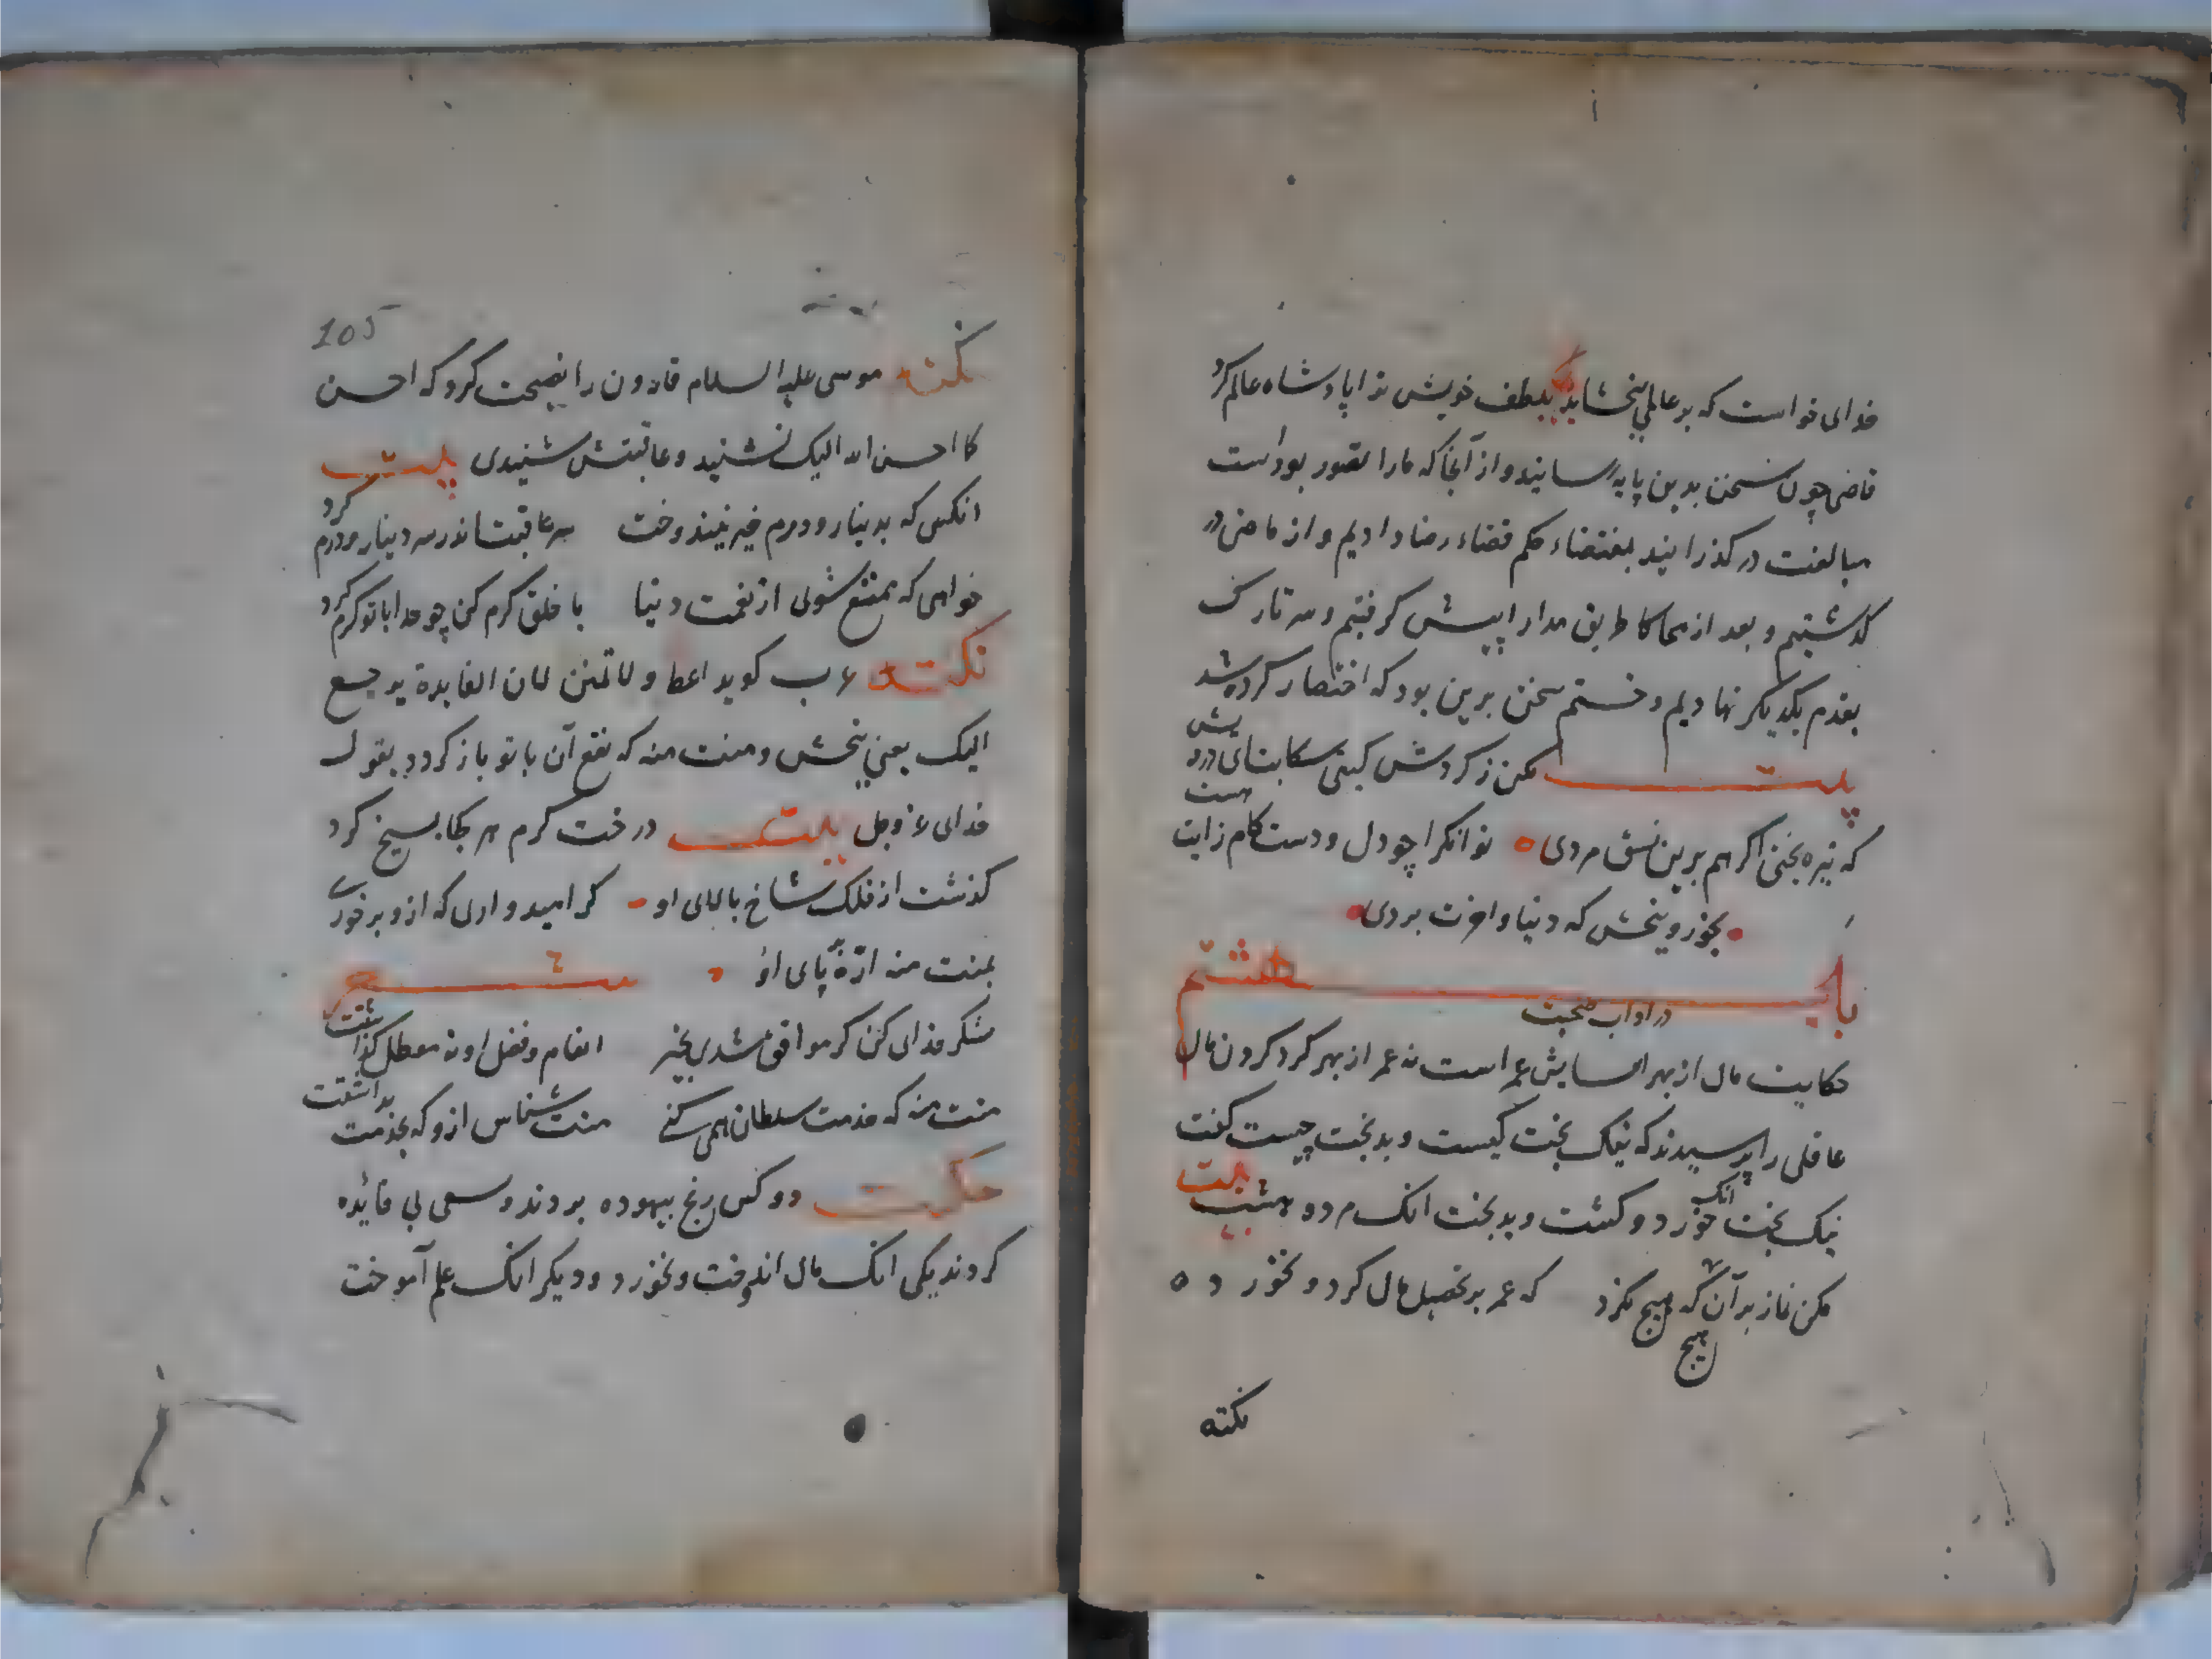 خدای خواست که بر عالمی ببخشاید بلطف خویش ترا پادشاه عالم کرد
قاضی چون سخن بدین پایه رسانید و از آنجا که مارا تصور بود است
مبالغت در گذرانید بمقتضاء حکم قضاء رضا دادیم و از ماضی در
گذشتیم و بعد از محاکا طریق مدارا پیش گرفتیم و سر تارک
بقدم یکدیگر نهادیم و ختم سخن برین بود که اختصار کرده شد
بیت مکن ز گردش گیتی شکایتای درویش
که تیره بختی اگر هم برین نسق مردی توانگرا چو دل و دست کام رانت هست
بخور و ببخش که دنیا و اخرت بردی
باب هشتم
در اداب صحبت
حکایت مال از بهر اسایش عمر است نه عمر از بهر گرد کردن مال
عاقلی را پرسیدند که نیک بخت کیست و بدبخت چیست گفت
نیک بخت انک خورد و کشت و بدبخت انک مرد و هشت بیت
مکن نماز بر آن هیچ که هیچ نکرد که عمر بر تحصیل مال کرد و نخورد
هیچ
نکته
105
نکته موسی علیه السلام قارون را نصیحت کرد که احسن
کما احسن الله الیک نشنید و عاقبتش شنیدی بیت
انکس که بدینار و درم خیر نیندوخت سر عاقبت اندر سر دینار و درم کرد
خواهی که متمتع شوی از نعمت دنیا با خلق کرم کن چو خدا با تو کرم کرد
نکته عرب گوید اعط و لا تمنن لان الفایدة یرجع
الیک یعنی ببخش و منت منه که نفع آن با تو باز گردد بقول
خدای عز و جل بیت درخت کرم هر کجا بیخ کرد
گذشت از فلک شاخ بالای او گر امید واری که ازو برخوری
بمنت منه ارّه بر پای او شعر
شکر خدای کن که موافق شدی بخیر انعام و فضل او نه معطل گذاشتت
منت منه که خدمت سلطان همی کنی منت شناس ازو که بخدمت بداشتت
حکایت دو کس رنج بیهوده بردند و سعی بی فائده
کردند یکی انک مال اندوخت و نخورد و دیگر انک علم آموخت